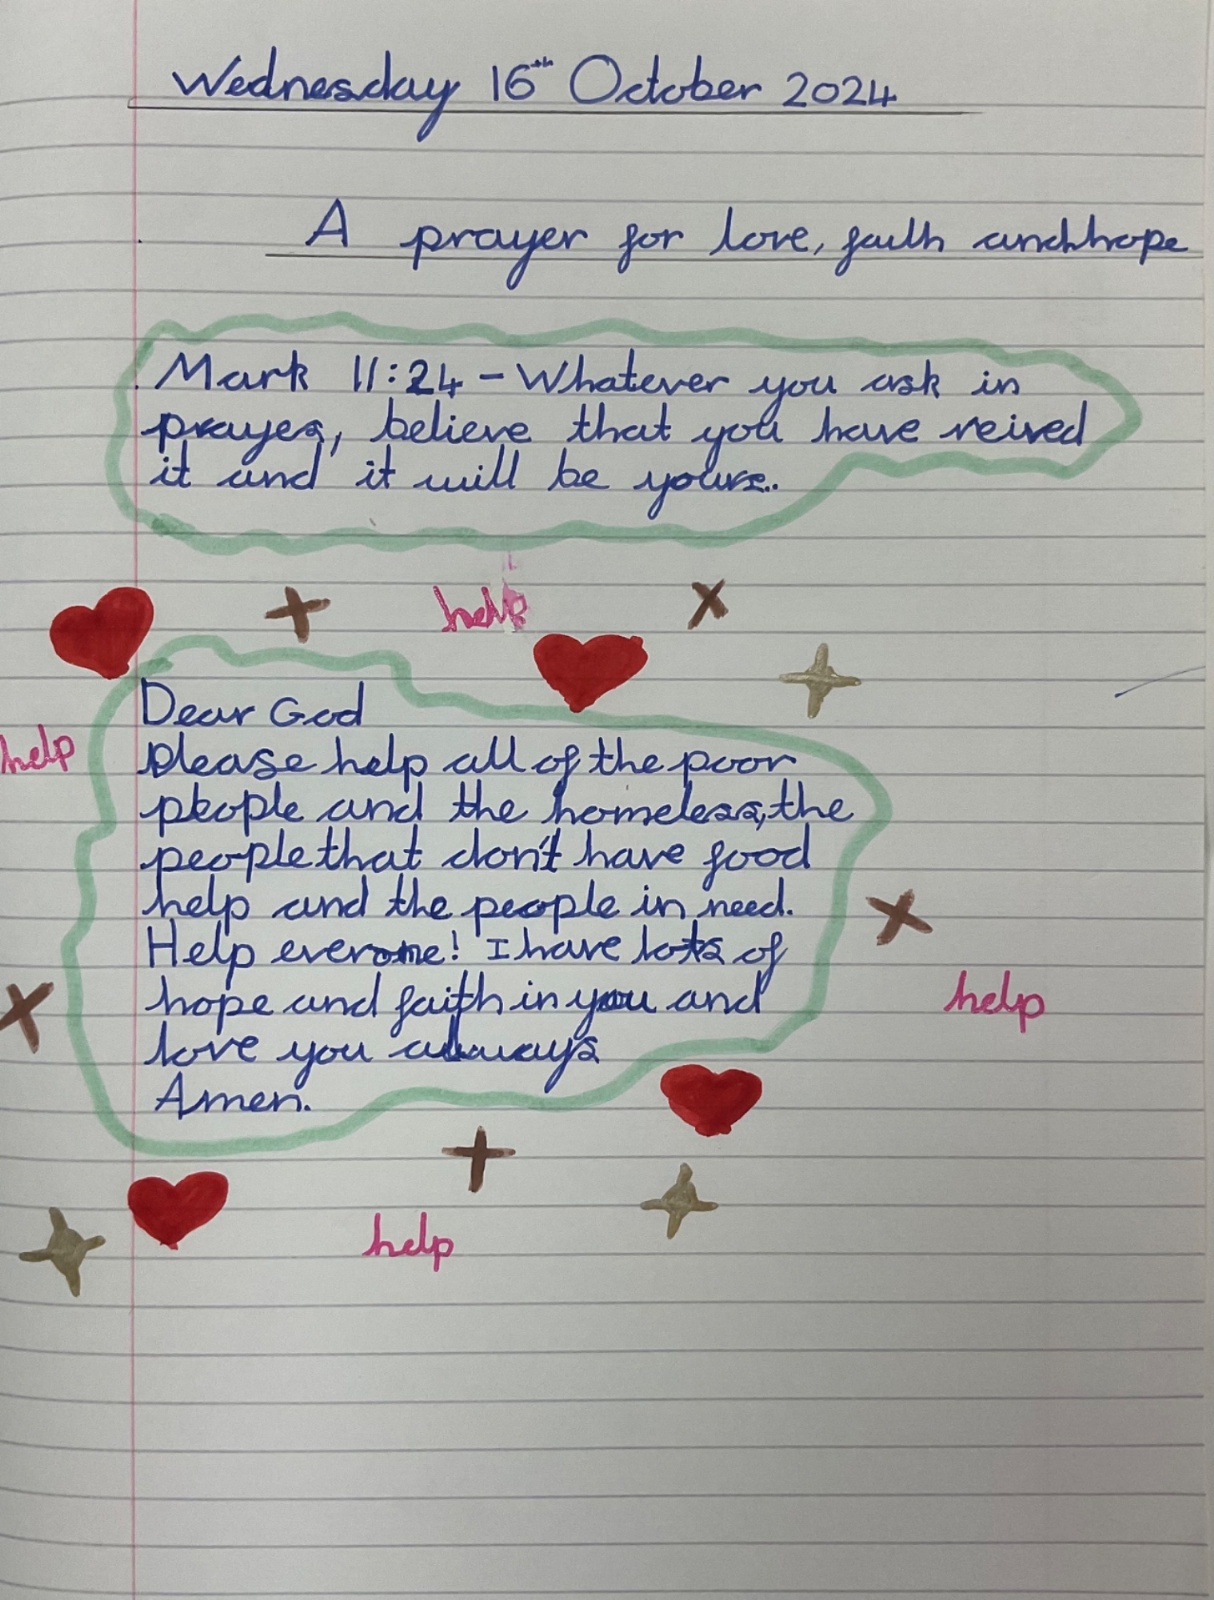 Wednesday 16th October 2024
A prayer for love, faith and hope
Mark 11:24 - Whatever you ask in
prayer, believe that you have reived
it and it will be yours..
help
Dear God
help
please help all of the poor
people and the homeless, the
people that don't have good
help and the people in need.
Help everone! I have lots of
hope and faith in you and
help
love you always
Amen.
help